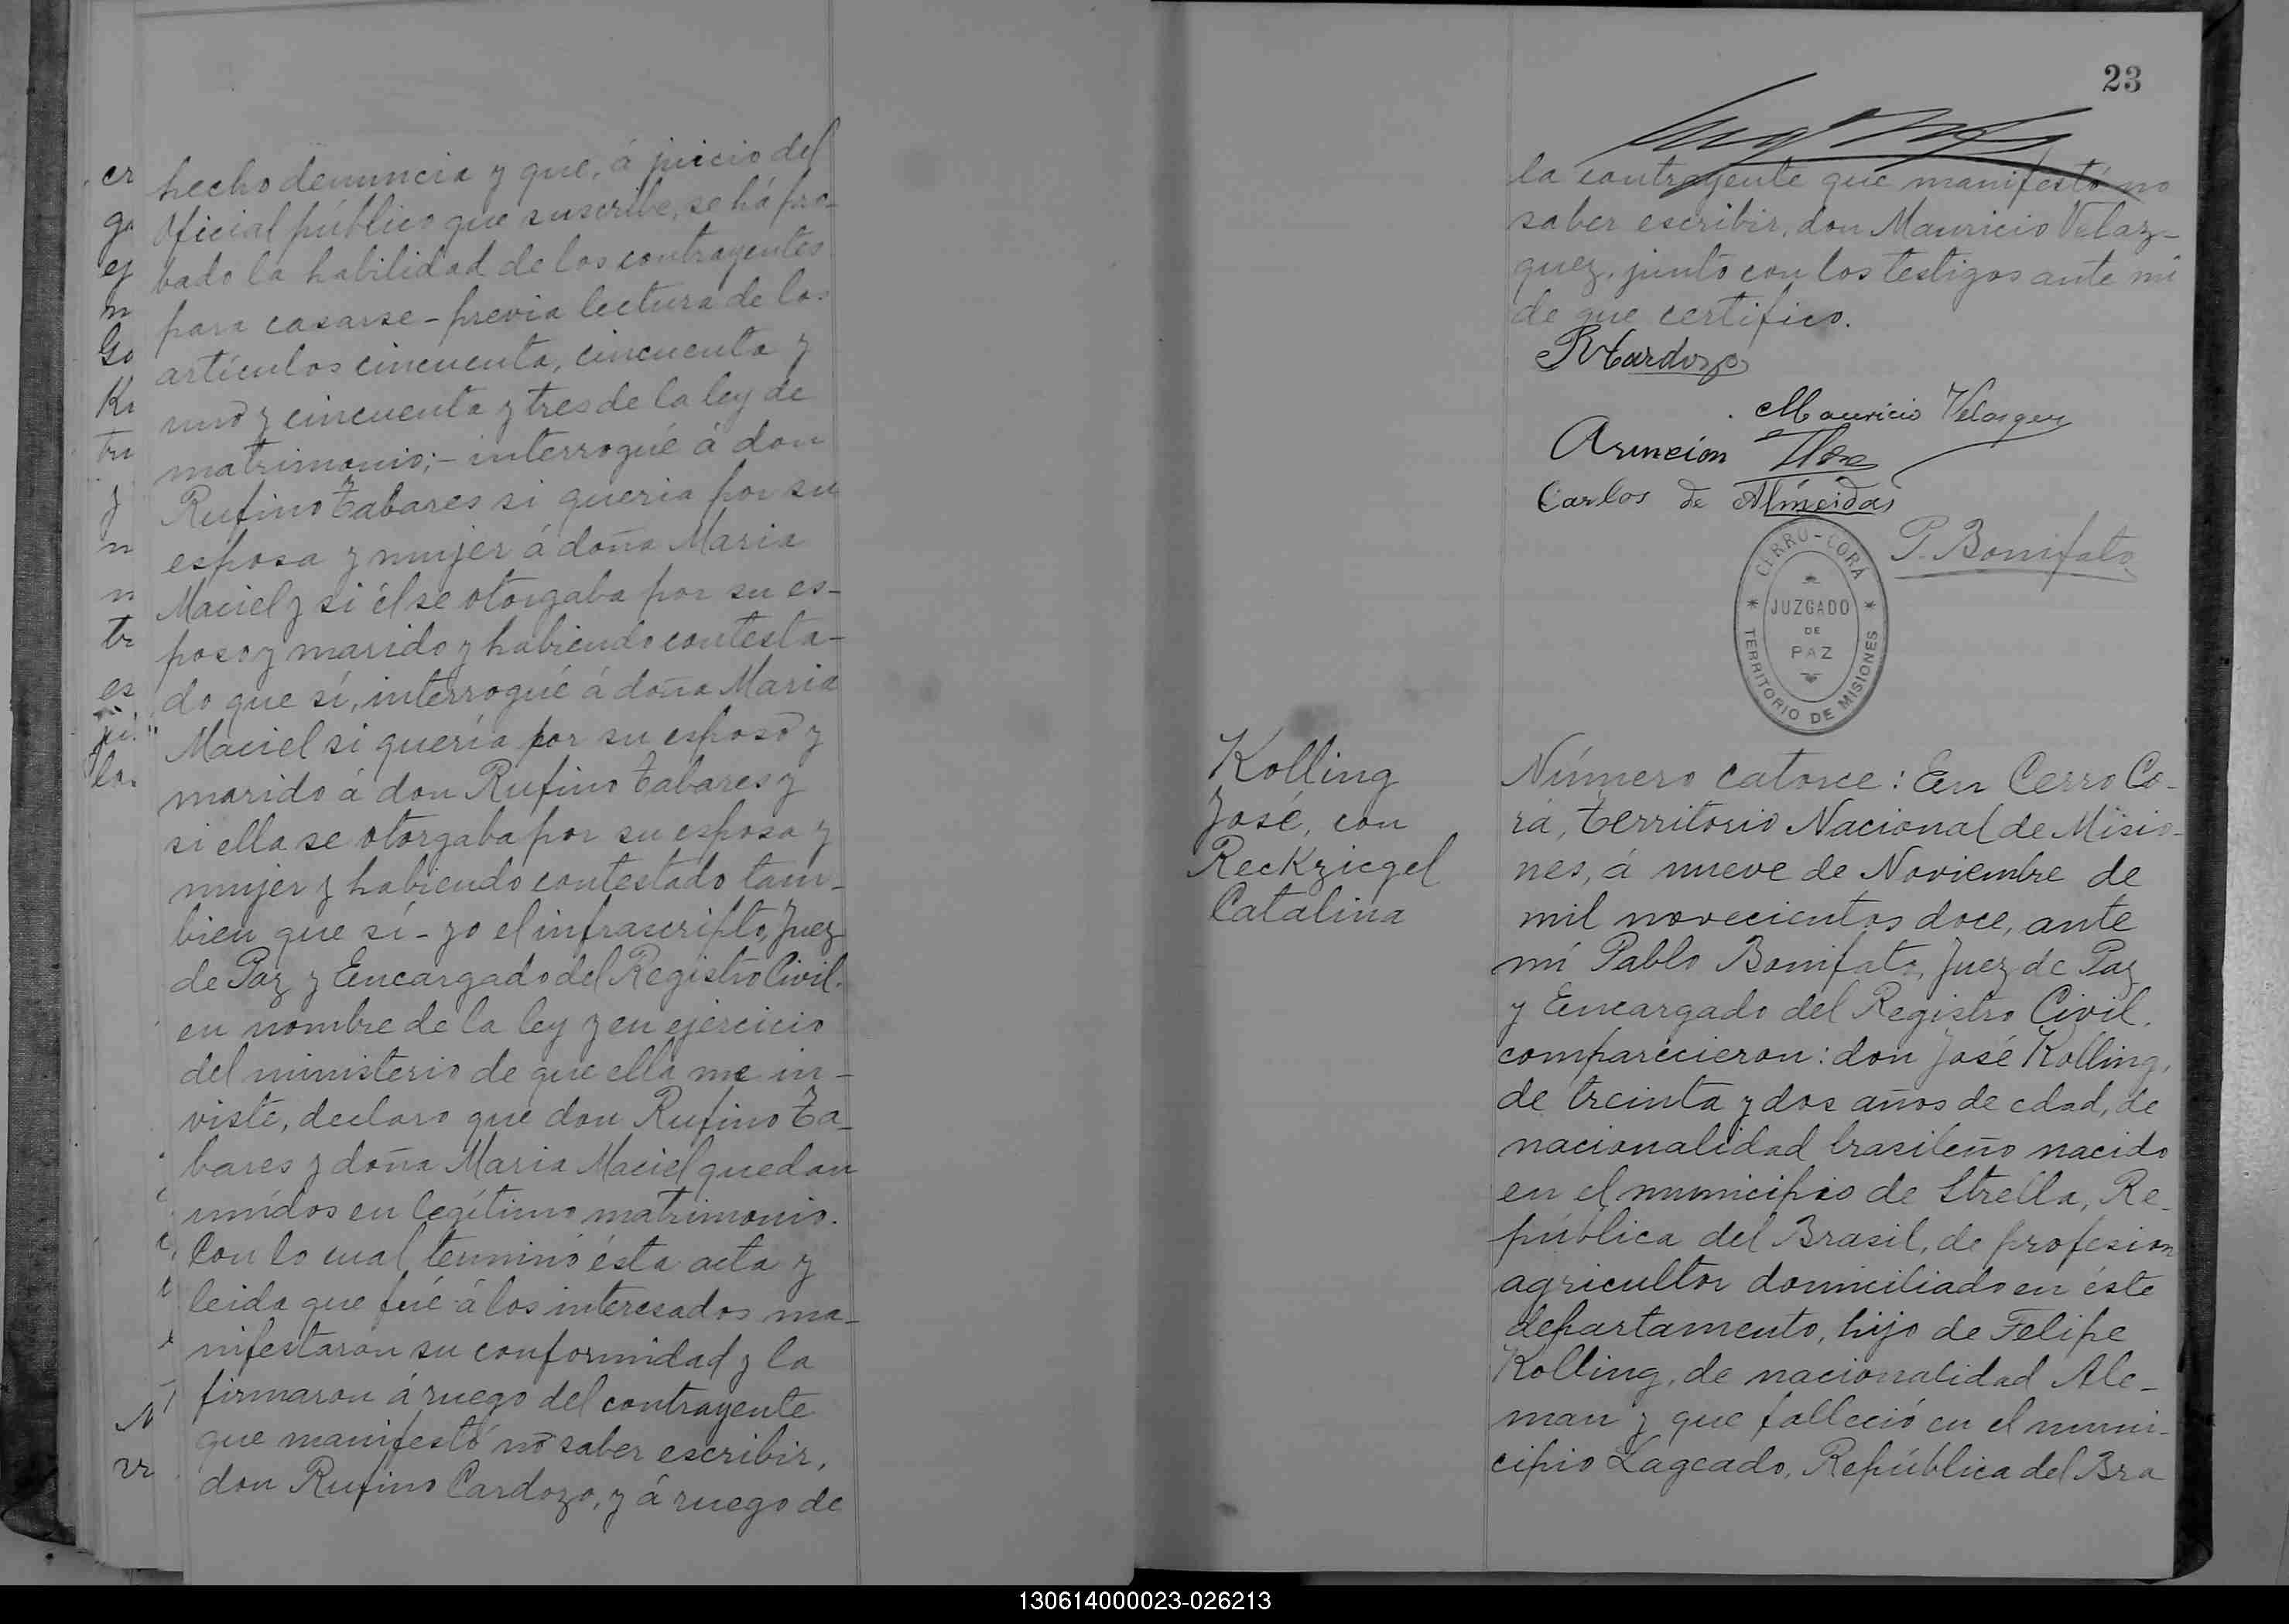 hecho denuncia y que, á juicio del
Oficial público que suscribe, se há pro-
bado la habilidad de los contrayentes
para casarse - previa lectura de los
artículos cincuenta, cincuenta y
uno y cincuenta y tres de la ley de
matrimonio; - interrogué á don
Rufino Tabares si queria por su
esposa y mujer á doña Maria
Maciel y si él se otorgaba por su es-
poso y marido y habiendo contesta-
do que sí, interrogué á doña Maria
Maciel si quería por su esposo y
marido á don Rufino Tabares y
si ella se otorgaba por su esposa y
mujer y habiendo contestado tam-
bien que sí - yo el infrascripto, Juez
de Paz y Encargado del Registro Civil.
en nombre de la ley y en ejercicio
del ministerio de que ella me in-
viste, declaro que don Rufino Ta-
bares y doña Maria Maciel quedan
unidos en legítimo matrimonio.
Con lo cual terminó ésta acta y
leida que fué á los interesados ma-
nifestaron su conformidad y la
firmaron á ruego del contrayente
que manifestó no saber escribir,
don Rufino Cardozo, y á ruego de
23
la contrayente que manifestó no
saber escribir, don Mauricio Velaz-
quez, junto con los testigos ante mi
de que certifico.
R Cardozo
Mauricio Velasquez
Asuncion
Carlos de Almeidas
P. Bonifato
CERRO-CORÁ
JUZGADO
DE
PAZ
TERRITORIO DE MISIONES
Kolling
José, con
Reckziegel
Catalina
Número catorce: En Cerro Co-
rá, territorio Nacional de Misio-
nes, á nueve de Noviembre de
mil novecientos doce, ante
mí Pablo Bonifato, Juez de Paz
y Encargado del Registro Civil.
comparecieron: don José Kolling,
de treinta y dos años de edad, de
nacionalidad brasileño nacido
en el municipio de Strella, Re-
pública del Brasil, de profesion
agricultor domiciliado en éste
departamento, hijo de Felipe
Kolling, de nacionalidad Ale-
man y que falleció en el muni-
cipio Lageado, República del Bra
130614000023-026213